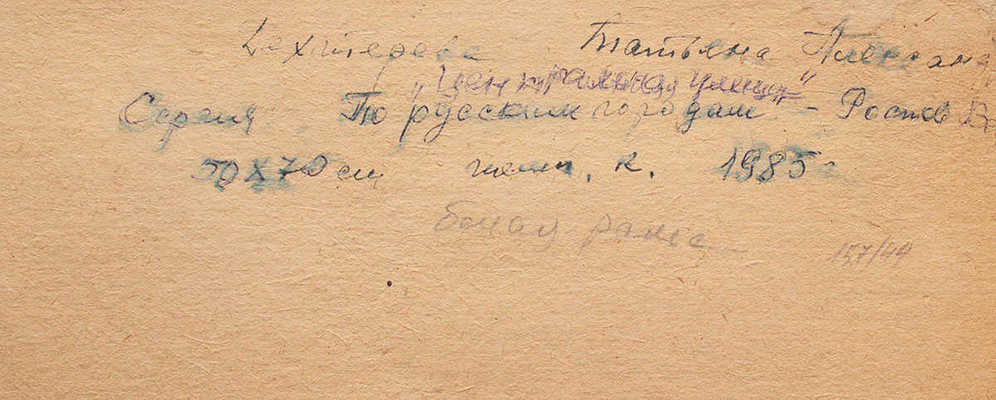 Дехтерева Татьяна Александ
„Центральная улица”
Серия По русским городам - Ростов В
50х70 см темп. к. 1985
белая рама
157/44